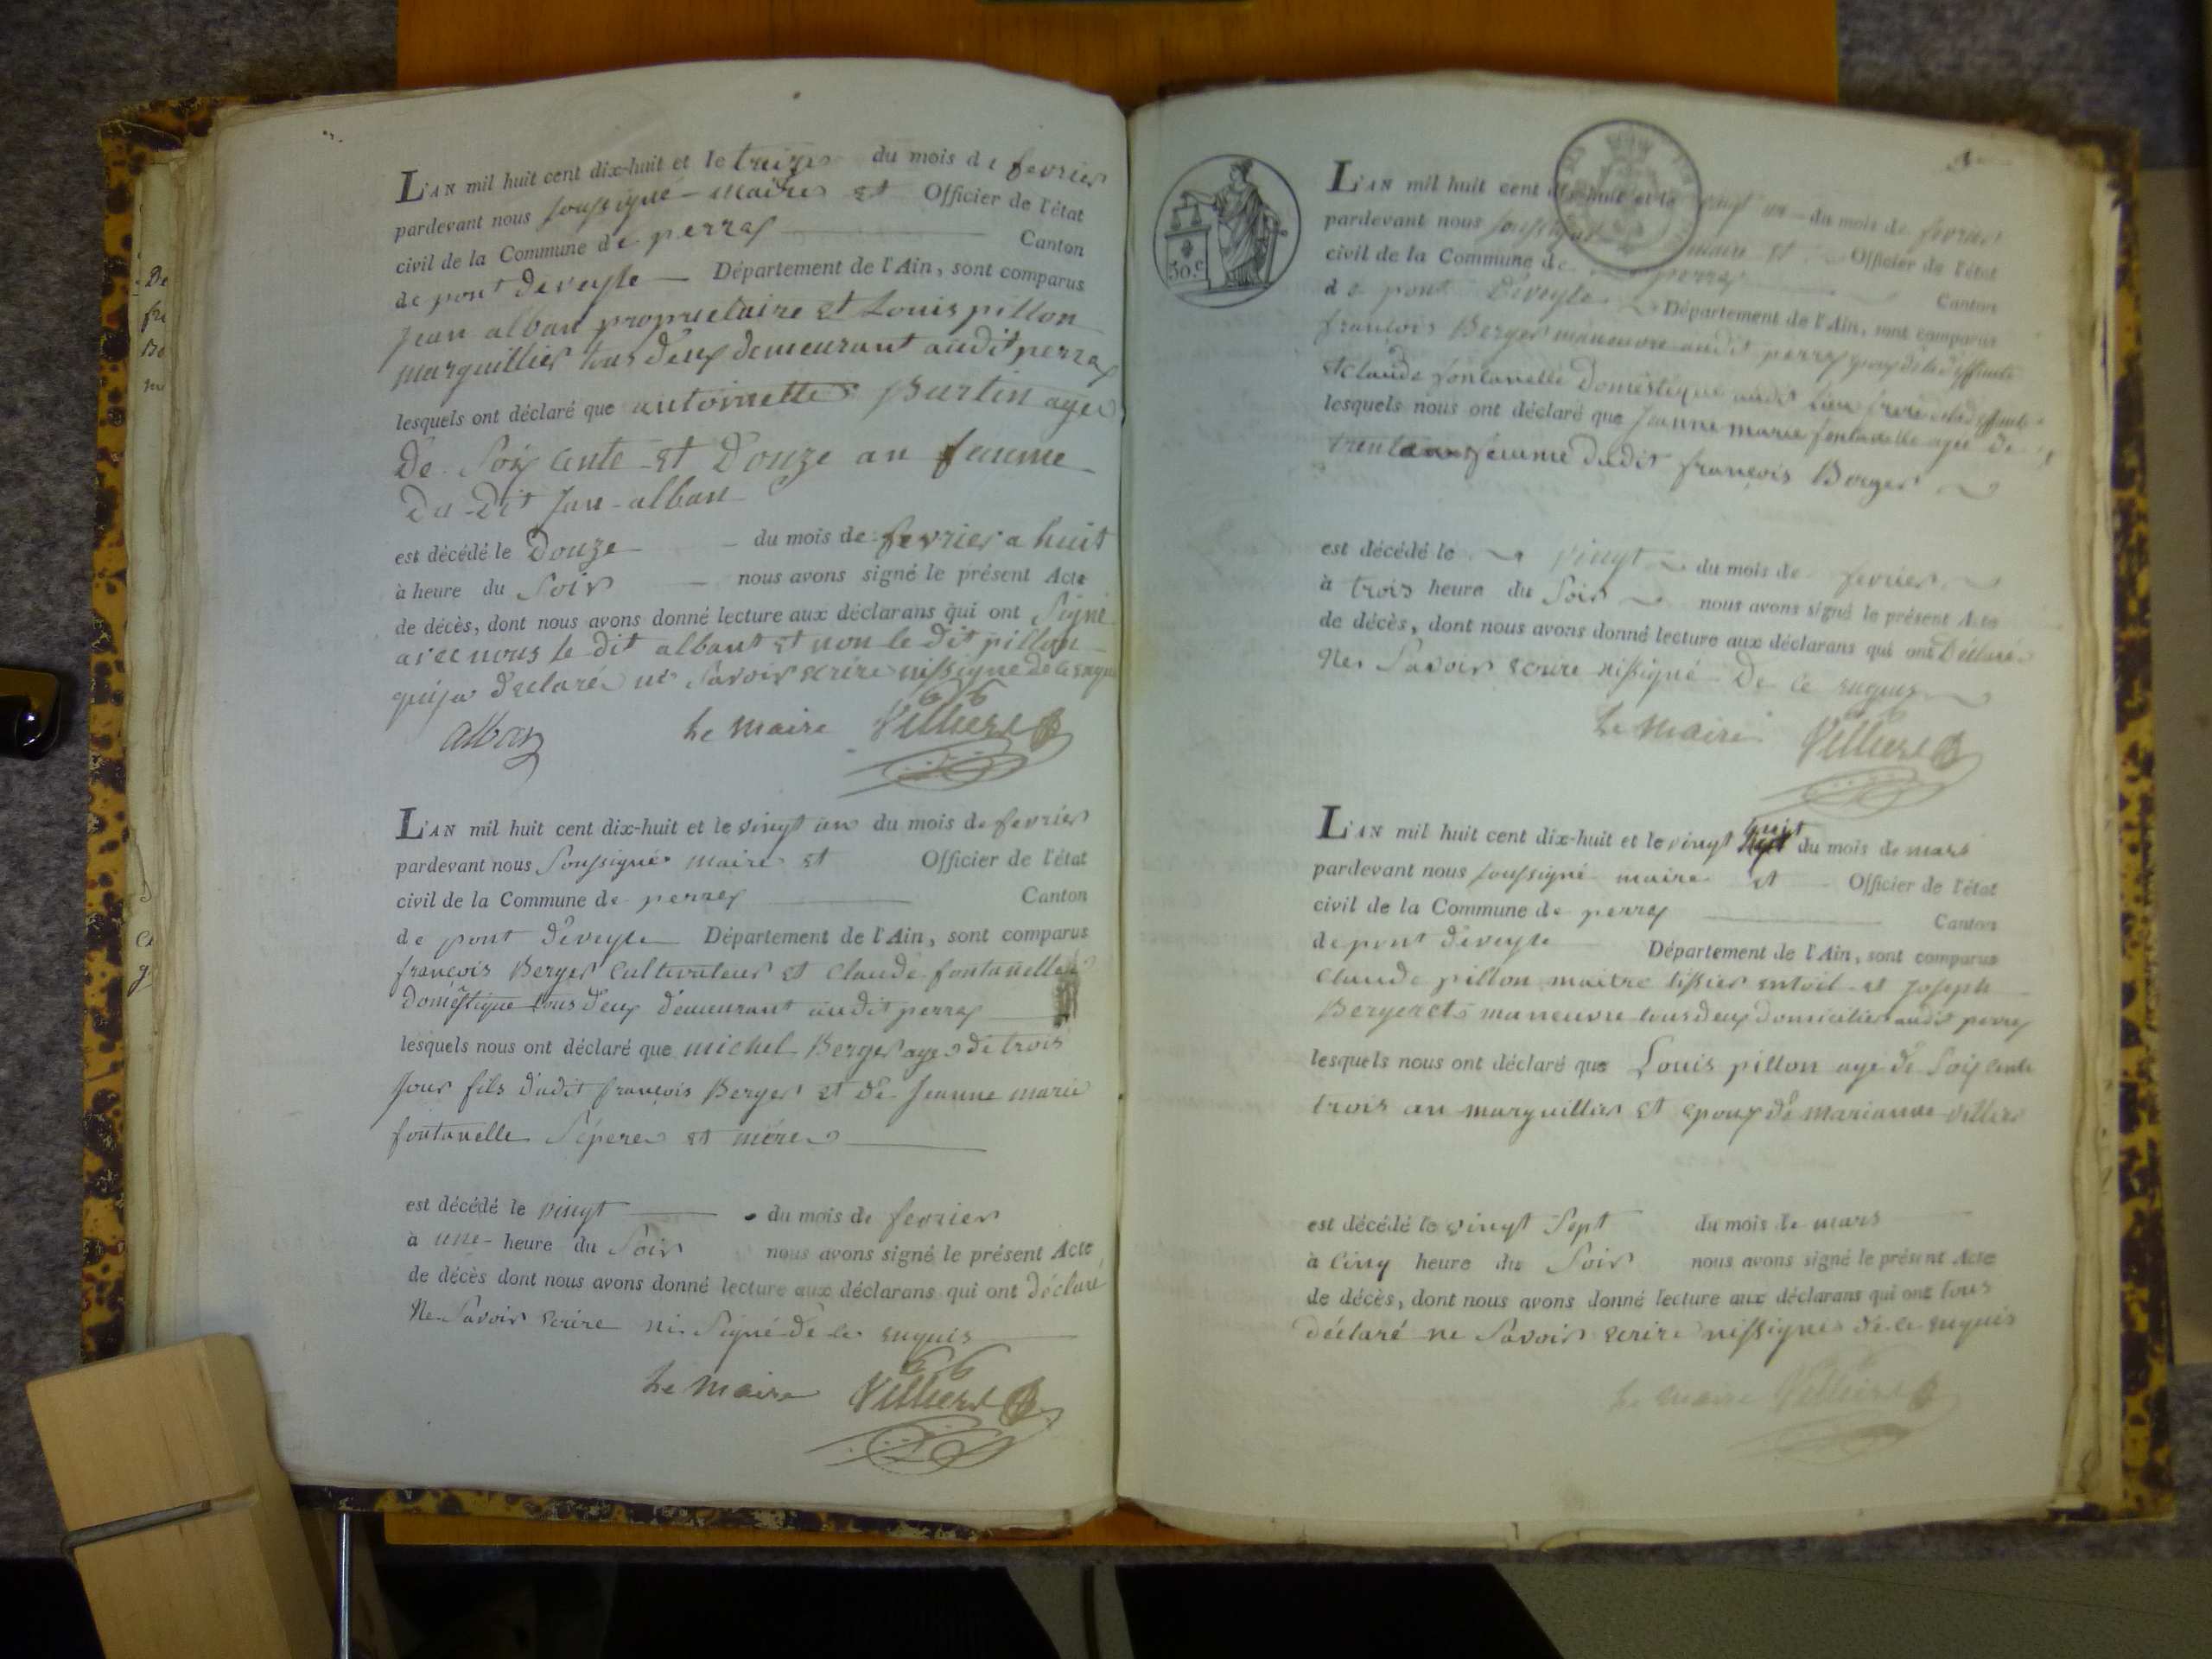 L'AN mil huit cent dix-huit et le treize du mois de fevrier
pardevant nous soussigné maire et Officier de l'état
civil de la Commune de perrex Canton
de pont deveyle Département de l'Ain, sont comparus
Jean alban proprietaire et Louis pillon
marguillier tous deux demeurant audit perrex
lesquels ont déclaré que antoinette Burtin agee
De Soixcente et Douze an femme
Du Dit Jan alban
est décédé le Douze du mois de fevrier a huit
à heure du Soir nous avons signé le présent Acte
de décès, dont nous avons donné lecture aux déclarans qui ont Signé
avec nous le dit albant et non le dit pillon
qui ja déclaré ne Savoir ecrire nissigne de ce enquis
alban Le maire Villiers
L'AN mil huit cent dix-huit et le vingt un du mois de fevrier
pardevant nous Soussigné maire et Officier de l'état
civil de la Commune de perrex Canton
de pont deveyle Département de l'Ain, sont comparus
françois Berger Cultivateur et Claude fontanelle
domestique tous deux demeurant audit perrex
lesquels nous ont déclaré que michel Berger age de trois
Jour fils dudit françois Berger et de Jeanne marie
fontanelle Sépere et mére
est décédé le vingt du mois de fevrier
à une heure du Soir nous avons signé le présent Acte
de décès dont nous avons donné lecture aux déclarans qui ont déclaré
Ne Savoir ecrire ni Signé de ce enquis
Le Maire Villiers
30. c
L'AN mil huit cent dix-huit et le vingt un du mois de fevrier
pardevant nous soussigné maire et Officier de l'état
civil de la Commune de perrex Canton
de pont Deveyle Département de l'Ain, sont comparus
françois Berger maneuvre audit perrex epoux de la deffunte
et Claude fontanelle Domestique audit lieu frere de la deffunte
lesquels nous ont déclaré que Jeanne marie fontanelle agee de
trente ans femme dudit françois Berger
est décédé le vingt du mois de fevrier
à trois heure du Soir nous avons signé le présent Acte
de décès, dont nous avons donné lecture aux déclarans qui ont Déclaré
Ne Savoir ecrire nissigné De ce enquis
Le Maire Villiers
L'AN mil huit cent dix-huit et le vingt huit du mois de mars
pardevant nous soussigné maire et Officier de l'état
civil de la Commune de perrex Canton
de pont deveyle Département de l'Ain, sont comparus
Claude pillon maitre tissier entoil et Joseph
Bergeret maneuvre tous deux domicilier audit perrex
lesquels nous ont déclaré que Louis pillon age de Soixcente
trois an marguillier et epoux de marianne villier
est décédé le vingt Sept du mois de mars
à Cinq heure du Soir nous avons signé le présent Acte
de décès, dont nous avons donné lecture aux déclarans qui ont tous
déclaré ne Savoir ecrire nissigné de ce enquis
Le maire Villiers